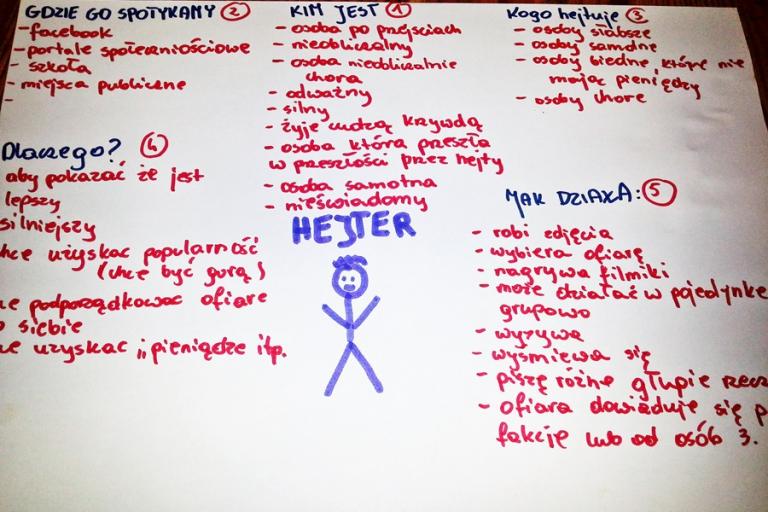 KIM JEST 1
- osoba po przejściach
- nieobliczalny
- osoba nieobliczalnie
chora
- odważny
- silny
- żyje cudzą krzywdą
- osoba która przeszła
w przeszłości przez hejty
- osoba samotna
- nieświadomy
HEJTER
GDZIE GO SPOTYKAMY 2
- facebook
- portale społecznościowe
- szkoła
- miejsca publiczne
-
Kogo hejtuje 3
- osoby słabsze
- osoby samotne
- osoby biedne, które nie
mają pieniędzy
- osoby chore
Dlaczego? 4
aby pokazać że jest
lepszy
silniejszy
chce uzyskać popularność
(chce być górą)
podporządkować ofiarę
siebie
uzyskać pieniądze itp.
JAK DZIAŁA: 5
- robi zdjęcia
- wybiera ofiarę
- nagrywa filmiki
- może działać w pojedynkę
grupowo
- wyzywa
- wyśmiewa się
- piszę różne głupie rzecz
- ofiara dowiaduje się p
fakcję lub od osób 3.